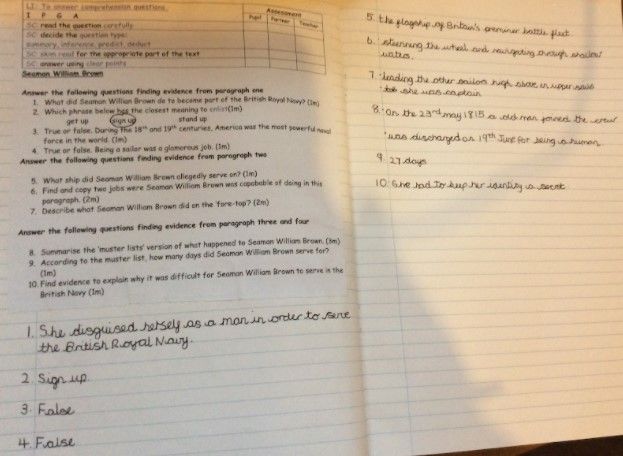 LI: To answer comprehension questions.
I P G A
SC read the question carefully
SC decide the question type:
summary, inference, predict, deduct
SC skim read for the appropriate part of the text
SC answer using clear points
Assessment
Pupil Partner Teacher
Seaman William Brown
Answer the following questions finding evidence from paragraph one
1. What did Seaman William Brown do to become part of the British Royal Navy? (1m)
2. Which phrase below has the closest meaning to enlist(1m)
get up sign up stand up
3. True or false. During the 18th and 19th centuries, America was the most powerful naval
force in the world. (1m)
4. True or false. Being a sailor was a glamorous job. (1m)
Answer the following questions finding evidence from paragraph two
5. What ship did Seaman William Brown allegedly serve on? (1m)
6. Find and copy two jobs were Seaman William Brown was capable of doing in this
paragraph. (2m)
7. Describe what Seaman William Brown did on the 'fore-top? (2m)
Answer the following questions finding evidence from paragraph three and four
8. Summarise the 'muster lists' version of what happened to Seaman William Brown. (3m)
9. According to the muster list, how many days did Seaman William Brown serve for?
(1m)
10. Find evidence to explain why it was difficult for Seaman William Brown to serve in the
British Navy (1m)
1. She disguised herself as a man in order to serve
the British Royal Navy.
2. Sign up.
3. False
4. False
5. the flagship of Britain's premier battle fleet.
6. steering the wheel and navigating through shallow
waters.
7. leading the other sailors high above in upper sails
she was captain
8. On the 23rd may 1815 a old man joined the crew
was discharged on 19th June for being a human.
9. 27 days
10. She had to keep her identity a secret